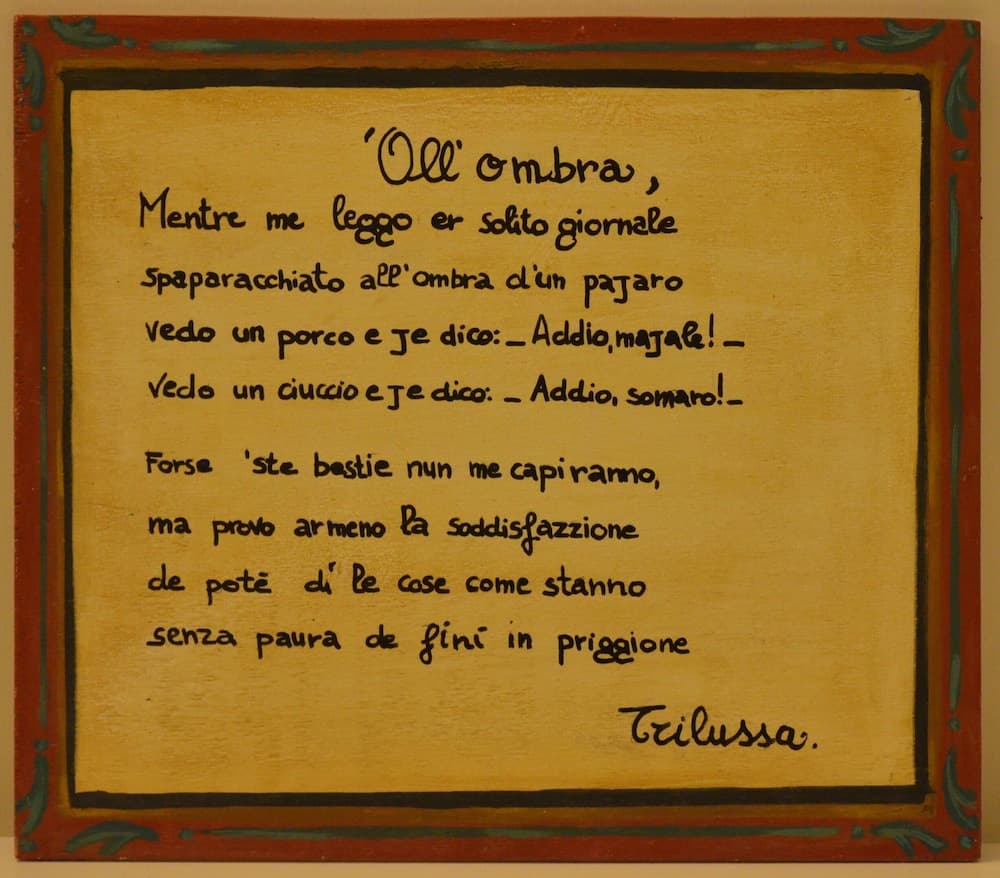 'All' ombra,
Mentre me leggo er solito giornale
spaparacchiato all'ombra d'un pajaro
vedo un porco e je dico: _ Addio, majale! _
vedo un ciuccio e je dico: _ Addio, somaro! _
Forse 'ste bestie nun me capiranno,
ma provo armeno la soddisfazzione
de potè dì le cose come stanno
senza paura de finì in priggione
Trilussa.